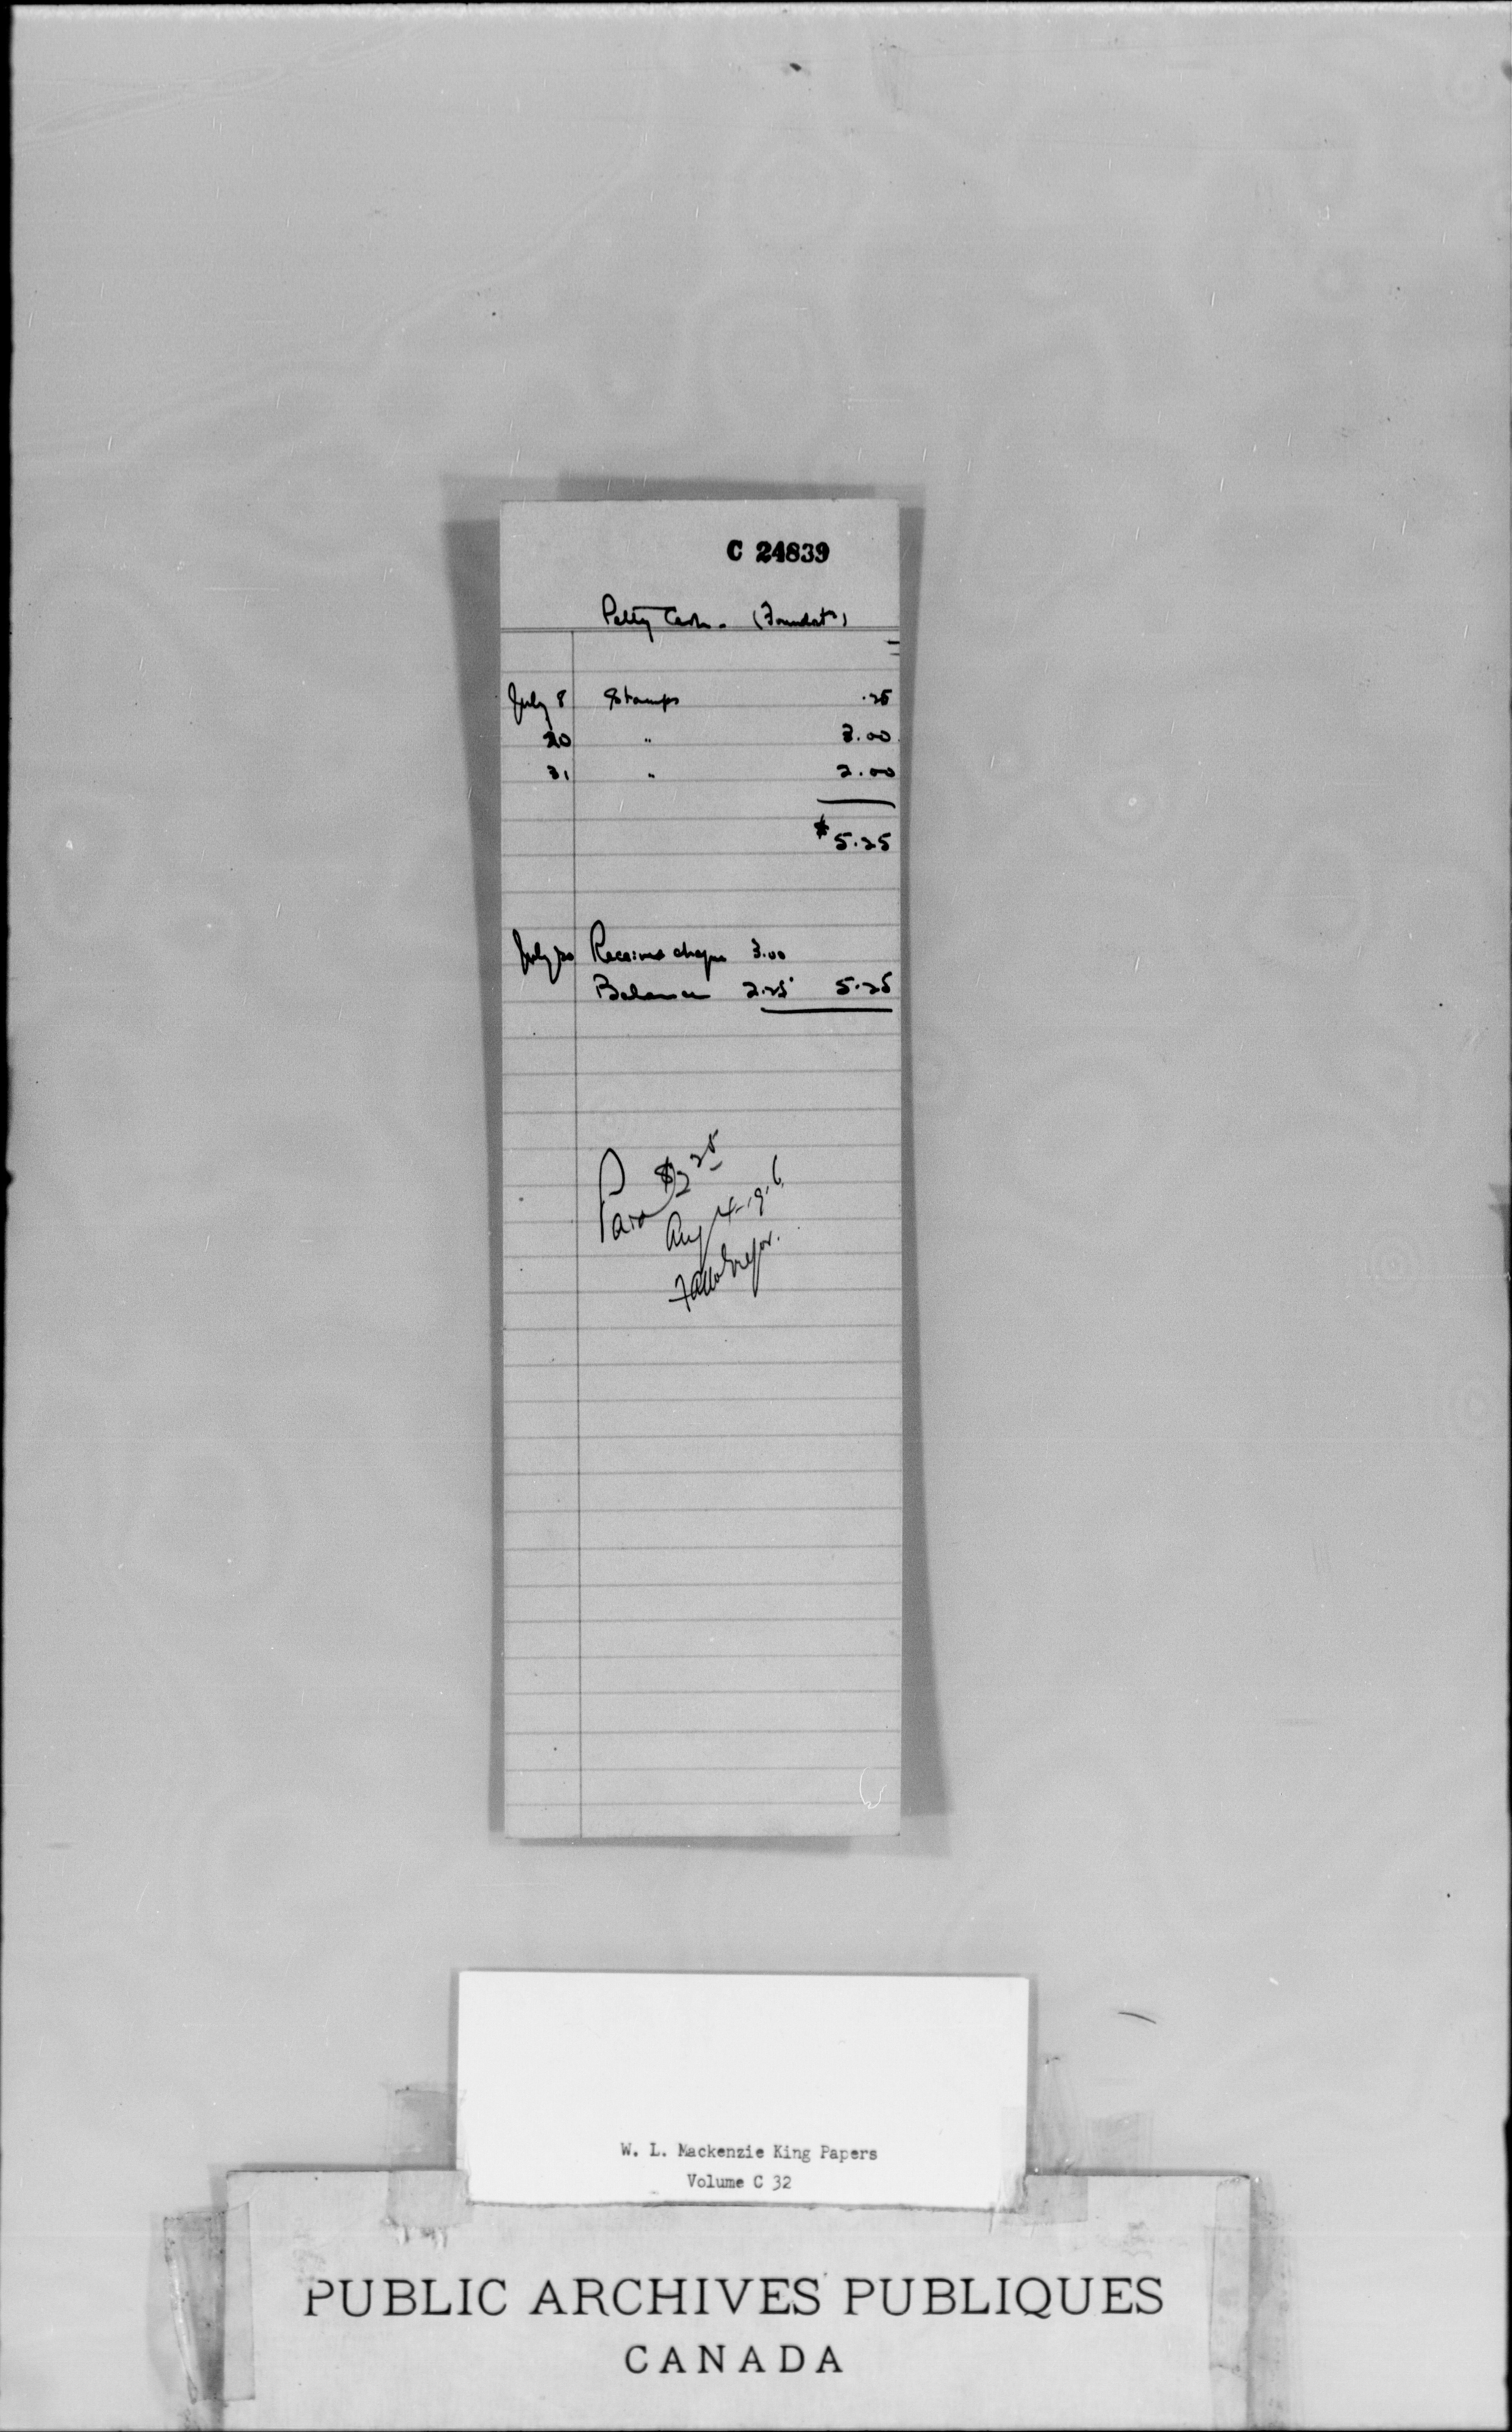 C 24839
Petty Cash. (Foundatn)
July 8 Stamps .25
20 " 3.00
31 " 2.00
$5.25
July 20 Received cheque 3.00
Balance 2.25 5.25
Paid $2.25
Aug 4-1916
W. L. Mackenzie King Papers
Volume C 32
PUBLIC ARCHIVES PUBLIQUES
CANADA